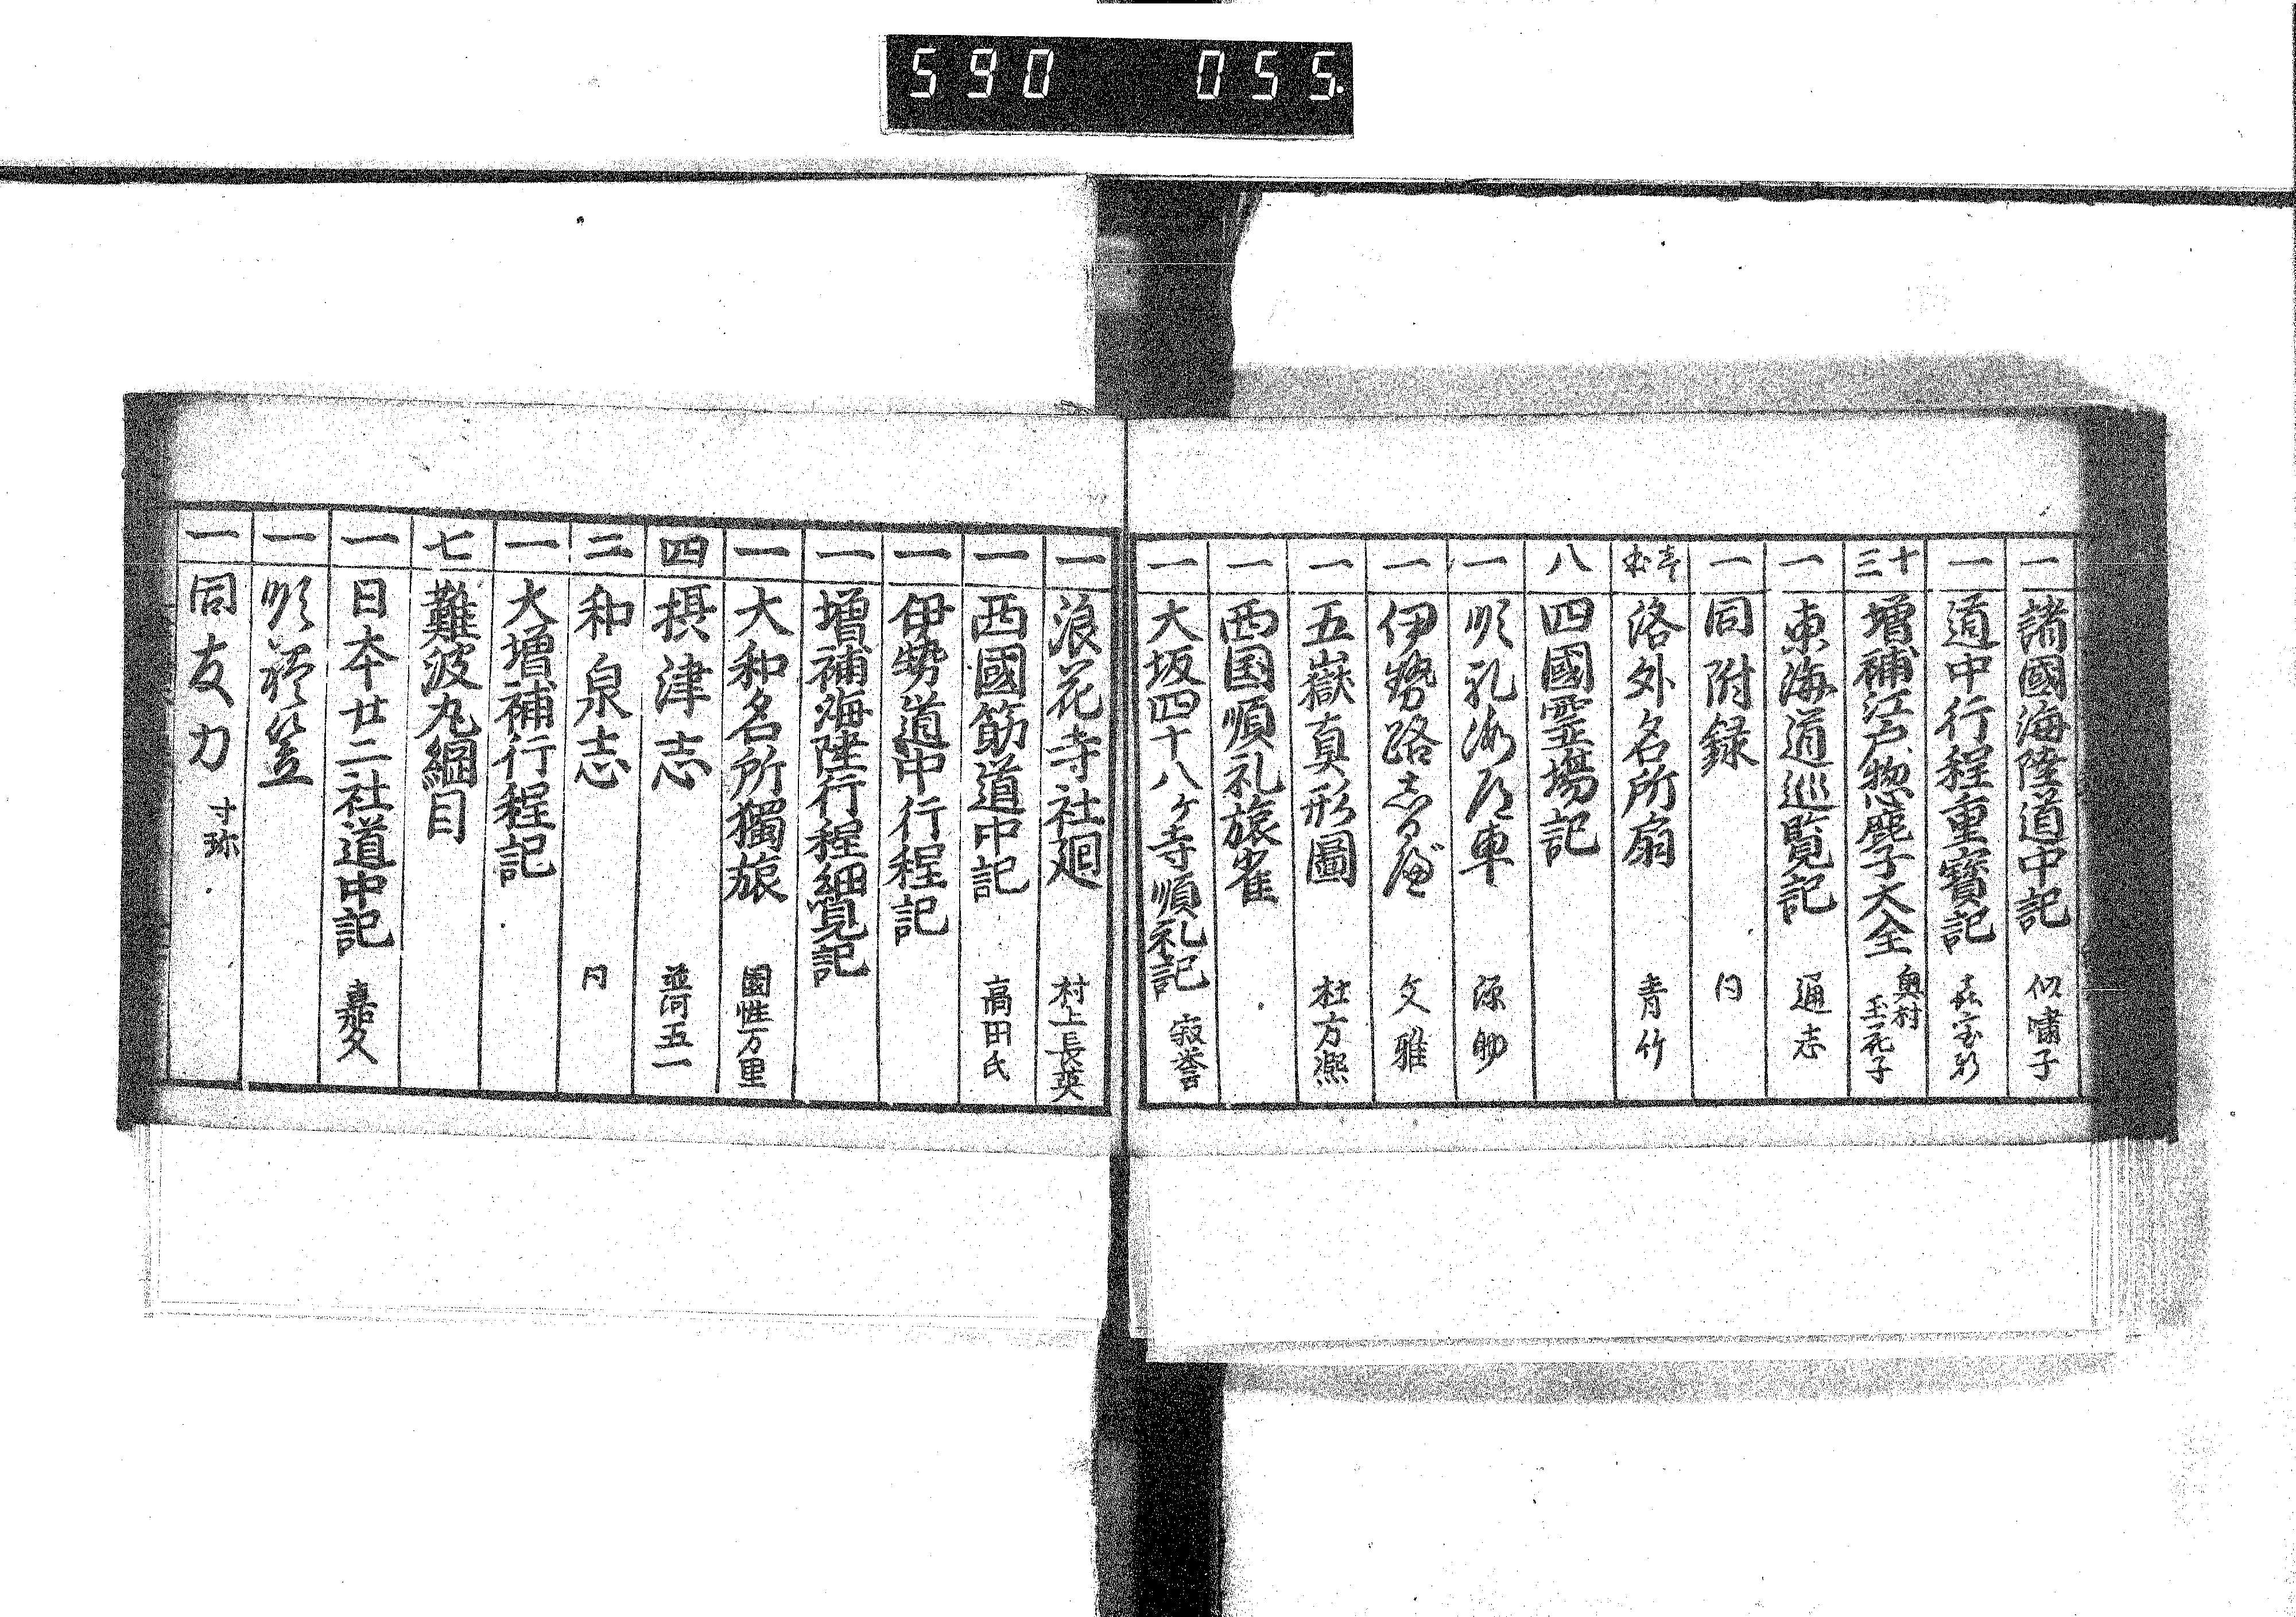 590 055.
一 諸國海陸道中記 似嘯子
一 道中行程重寶記
十三 増補江戸惣鹿子大全 奥村玉花子
一 東海道巡覧記 通志
一 同附録 同
洛外名所扇 青竹
八 四國霊場記
一 順礼海道車
一 伊勢路志るべ 文雅
一 五嶽真形圖 杜方𤋮
一 西国順礼旅雀
一 大坂四十八ケ寺順礼記 寂誉
一 浪花寺社廻 村上長英
一 西國筋道中記 高田氏
一 伊勢道中行程記
一 増補海陸行程細見記
一 大和名所獨旅 國性万里
四 摂津志 並河五一
二 和泉志 同
一 大増補行程記
七 難波丸綱目
一 日本廿二社道中記 嘉久
一 順禮笠
一 同友力 寸珍